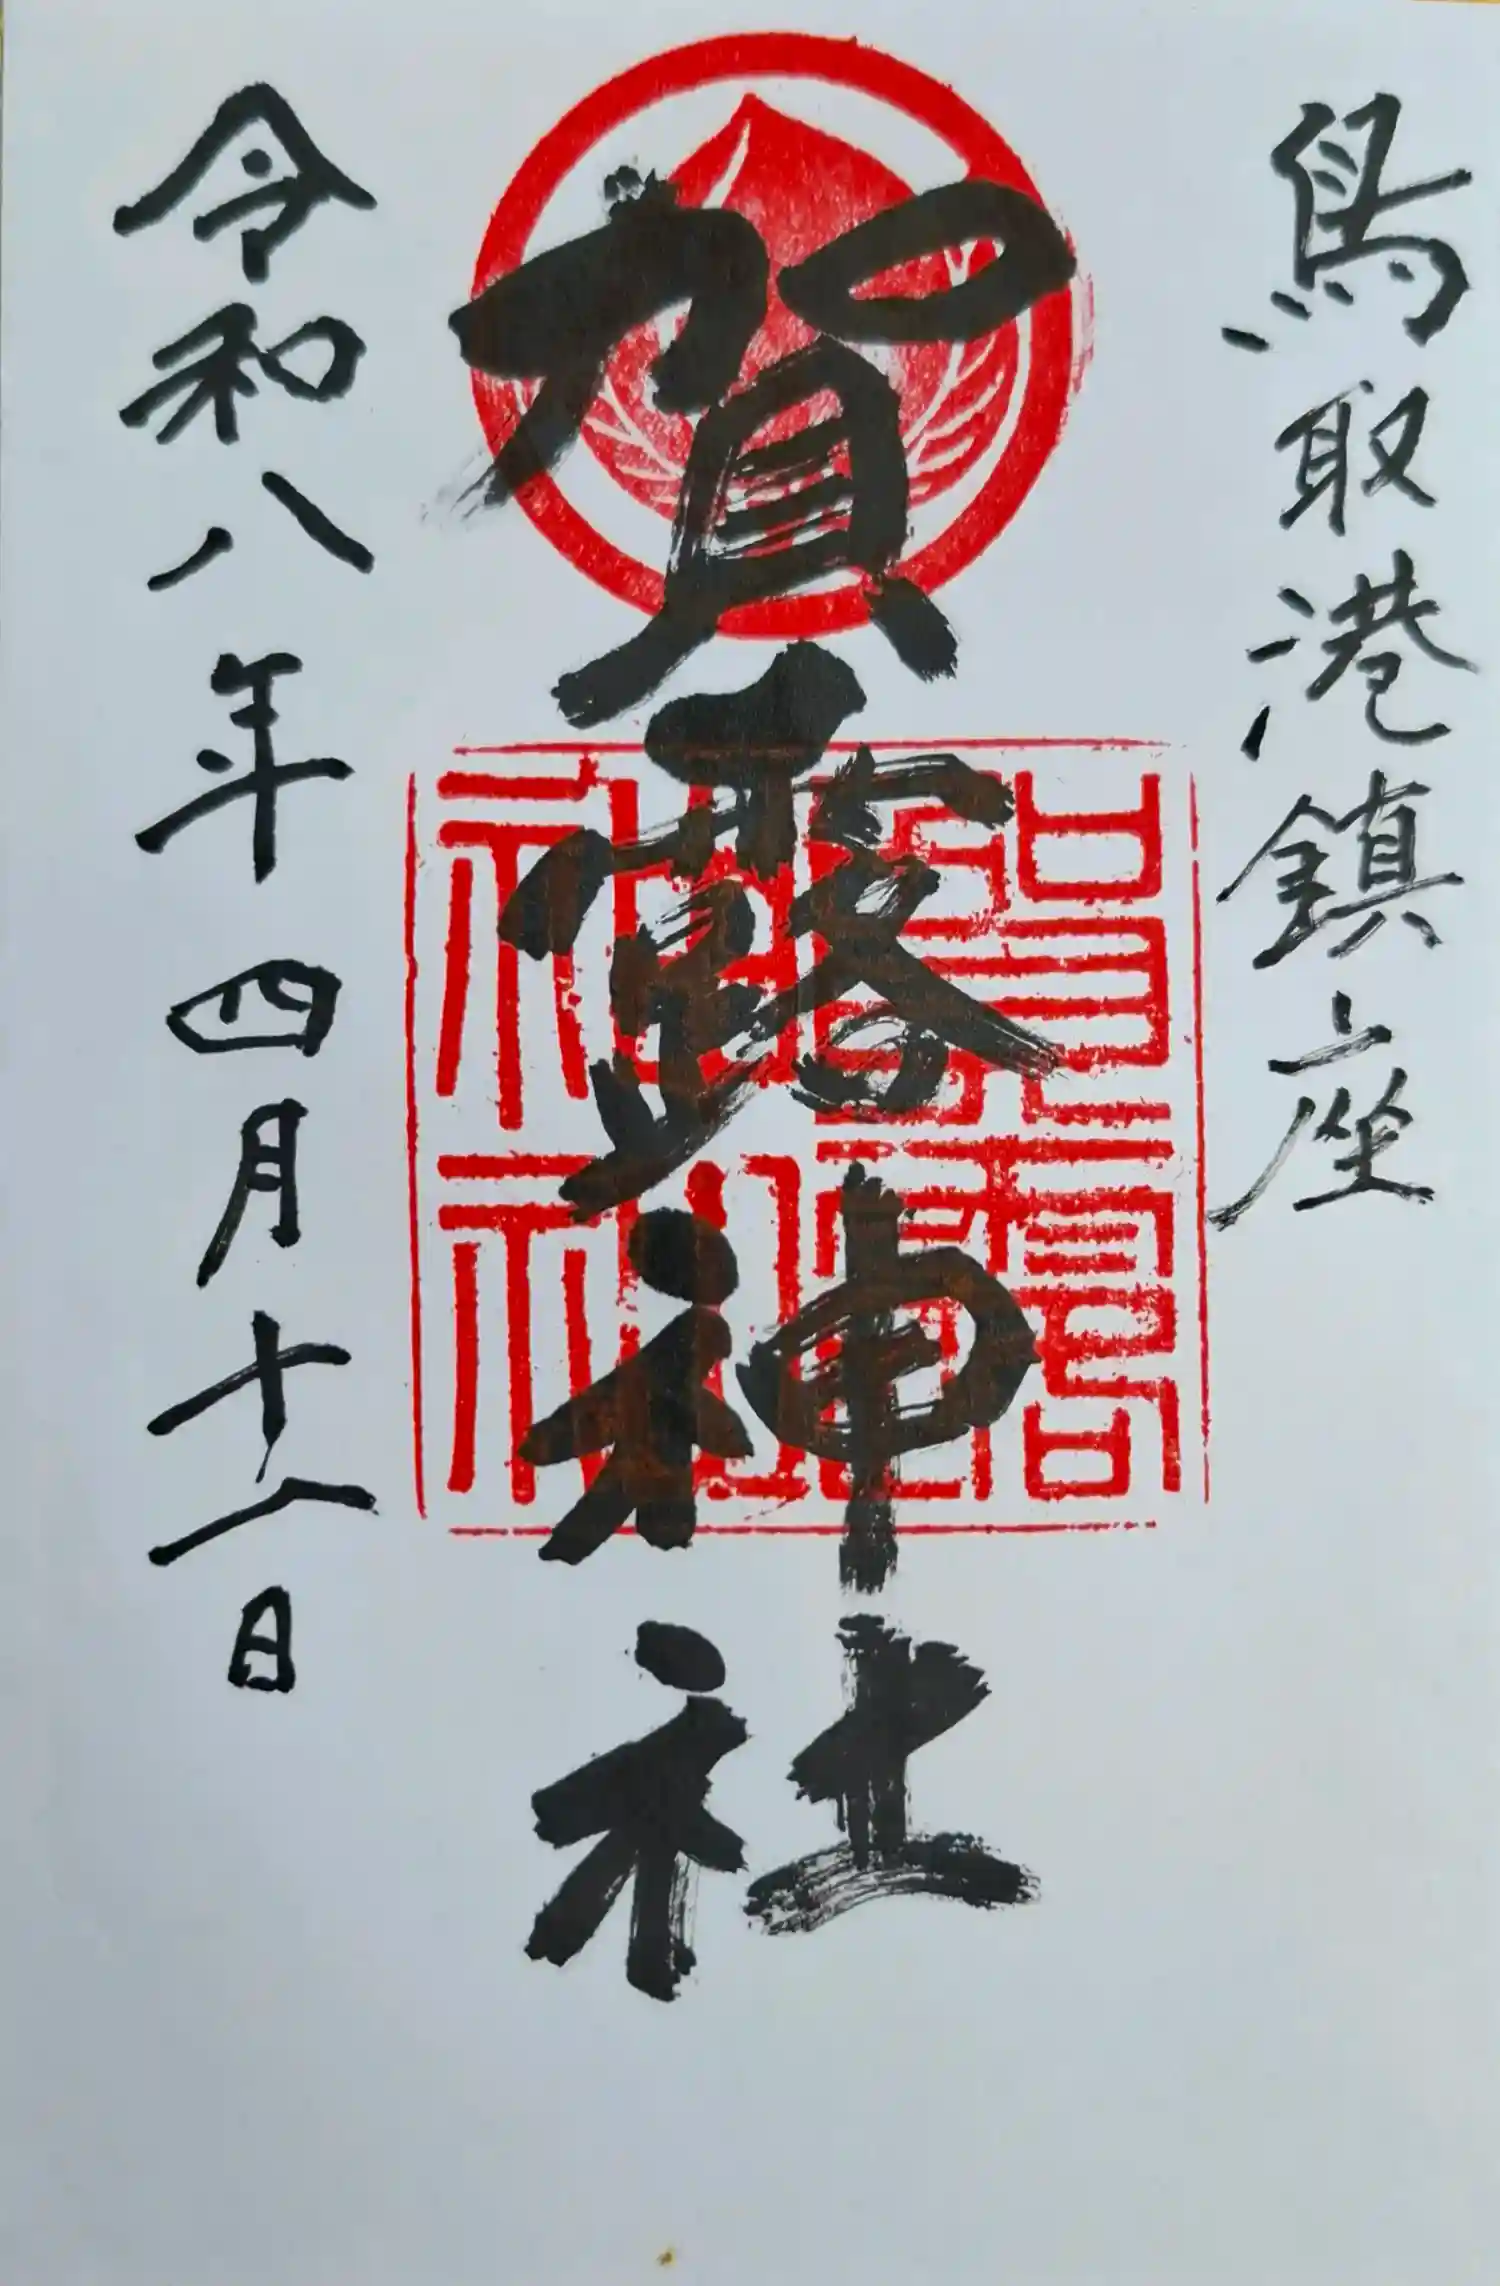 鳥取港鎮座
賀露神社
賀露
神社
令和八年四月十一日